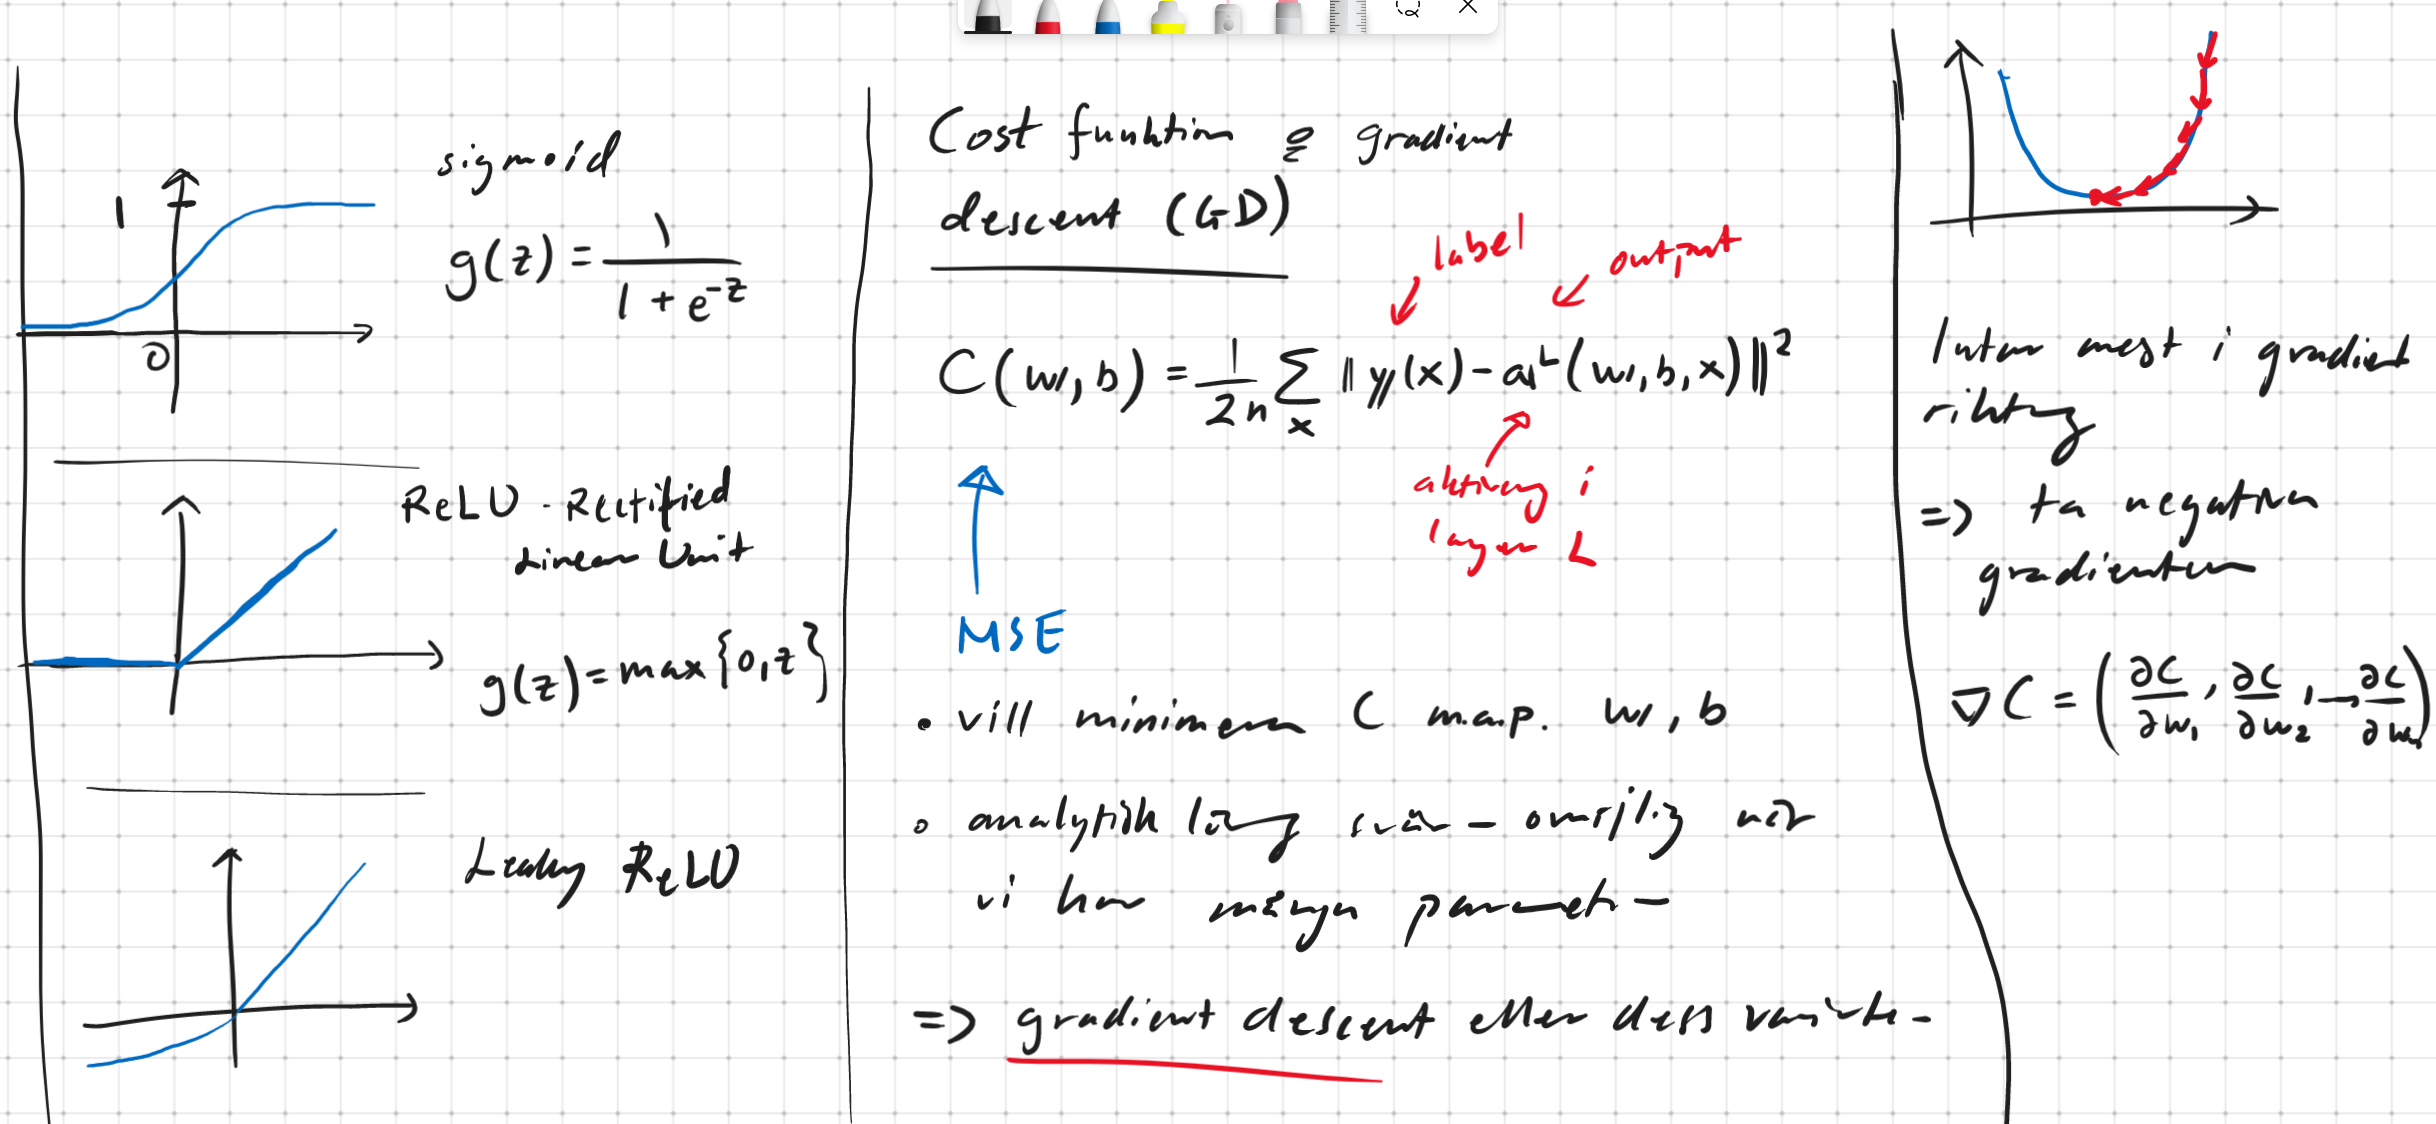 sigmoid
1
g(z) = 1 / (1 + e^-z)
0
ReLU - Rectified
Linear Unit
g(z) = max{0, z}
Leaky ReLU
Cost funktion & gradient
descent (GD)
label
output
C(w, b) = 1/2n Σ_x ‖y(x) - a^L(w, b, x)‖²
aktivering i
layer L
MSE
• vill minimera C m.a.p. w, b
• analytisk lösning svår - omöjlig när
vi har många parametrar
=> gradient descent eller dess varianter
mest i gradient
riktning
=> ta negativa
gradienten
∇C = (∂C/∂w₁, ∂C/∂w₂, ..., ∂C/∂wₙ)